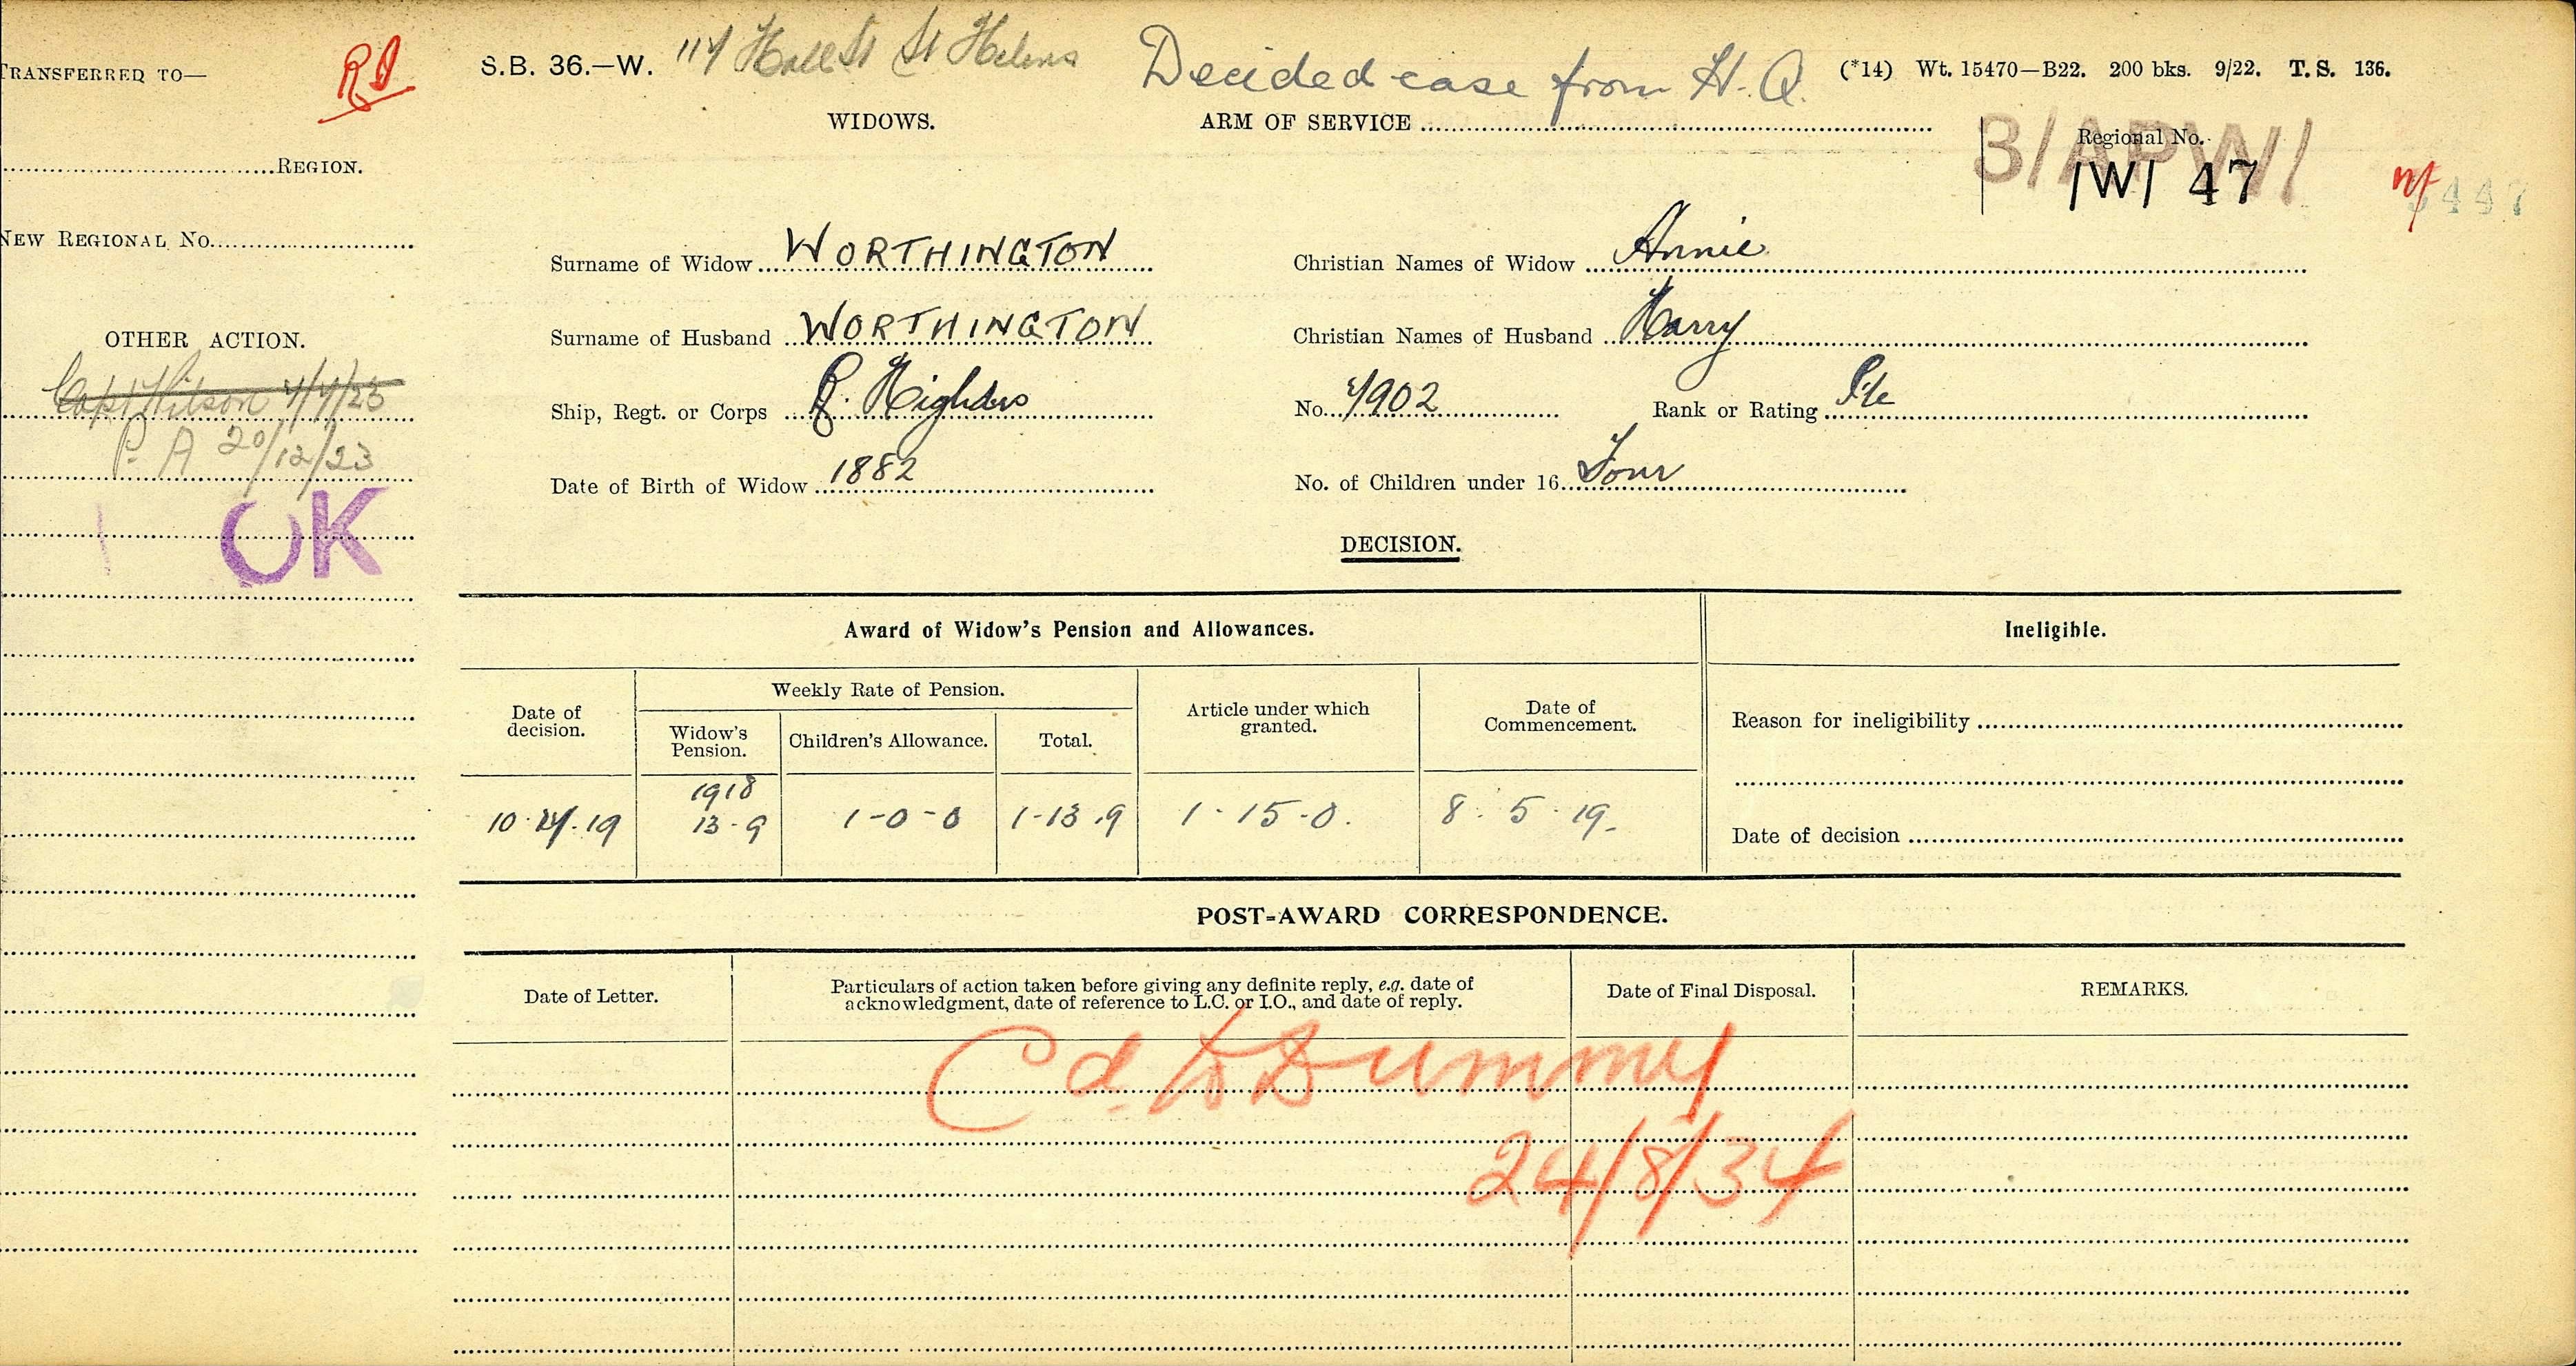 TRANSFERRED TO—
REGION.
NEW REGIONAL NO.
OTHER ACTION.
Capt Wilson 4/4/23
P. A 20/12/23
OK
S.B. 36.—W. 114 Hall St St Helens Decided case from H.Q. (*14) Wt. 15470—B22. 200 bks. 9/22. T.S. 136.
WIDOWS. ARM OF SERVICE
3/APW/
Regional No.
/W/ 47
Surname of Widow WORTHINGTON Christian Names of Widow Annie
Surname of Husband WORTHINGTON Christian Names of Husband Harry
Ship, Regt. or Corps R. Highdrs No. 4902 Rank or Rating Pte
Date of Birth of Widow 1882 No. of Children under 16 Four
DECISION.
Award of Widow's Pension and Allowances. Ineligible.
Date of decision. Weekly Rate of Pension. Article under which granted. Date of Commencement.
Widow's Pension. Children's Allowance. Total.
Reason for ineligibility
1918
13-9 1-0-0 1-13.9 1-15-0. 8.5.19.
Date of decision
POST-AWARD CORRESPONDENCE.
Date of Letter. Particulars of action taken before giving any definite reply, e.g. date of Date of Final Disposal. REMARKS.
acknowledgment, date of reference to L.C. or I.O., and date of reply.
Cd. to Dummy
24/8/34